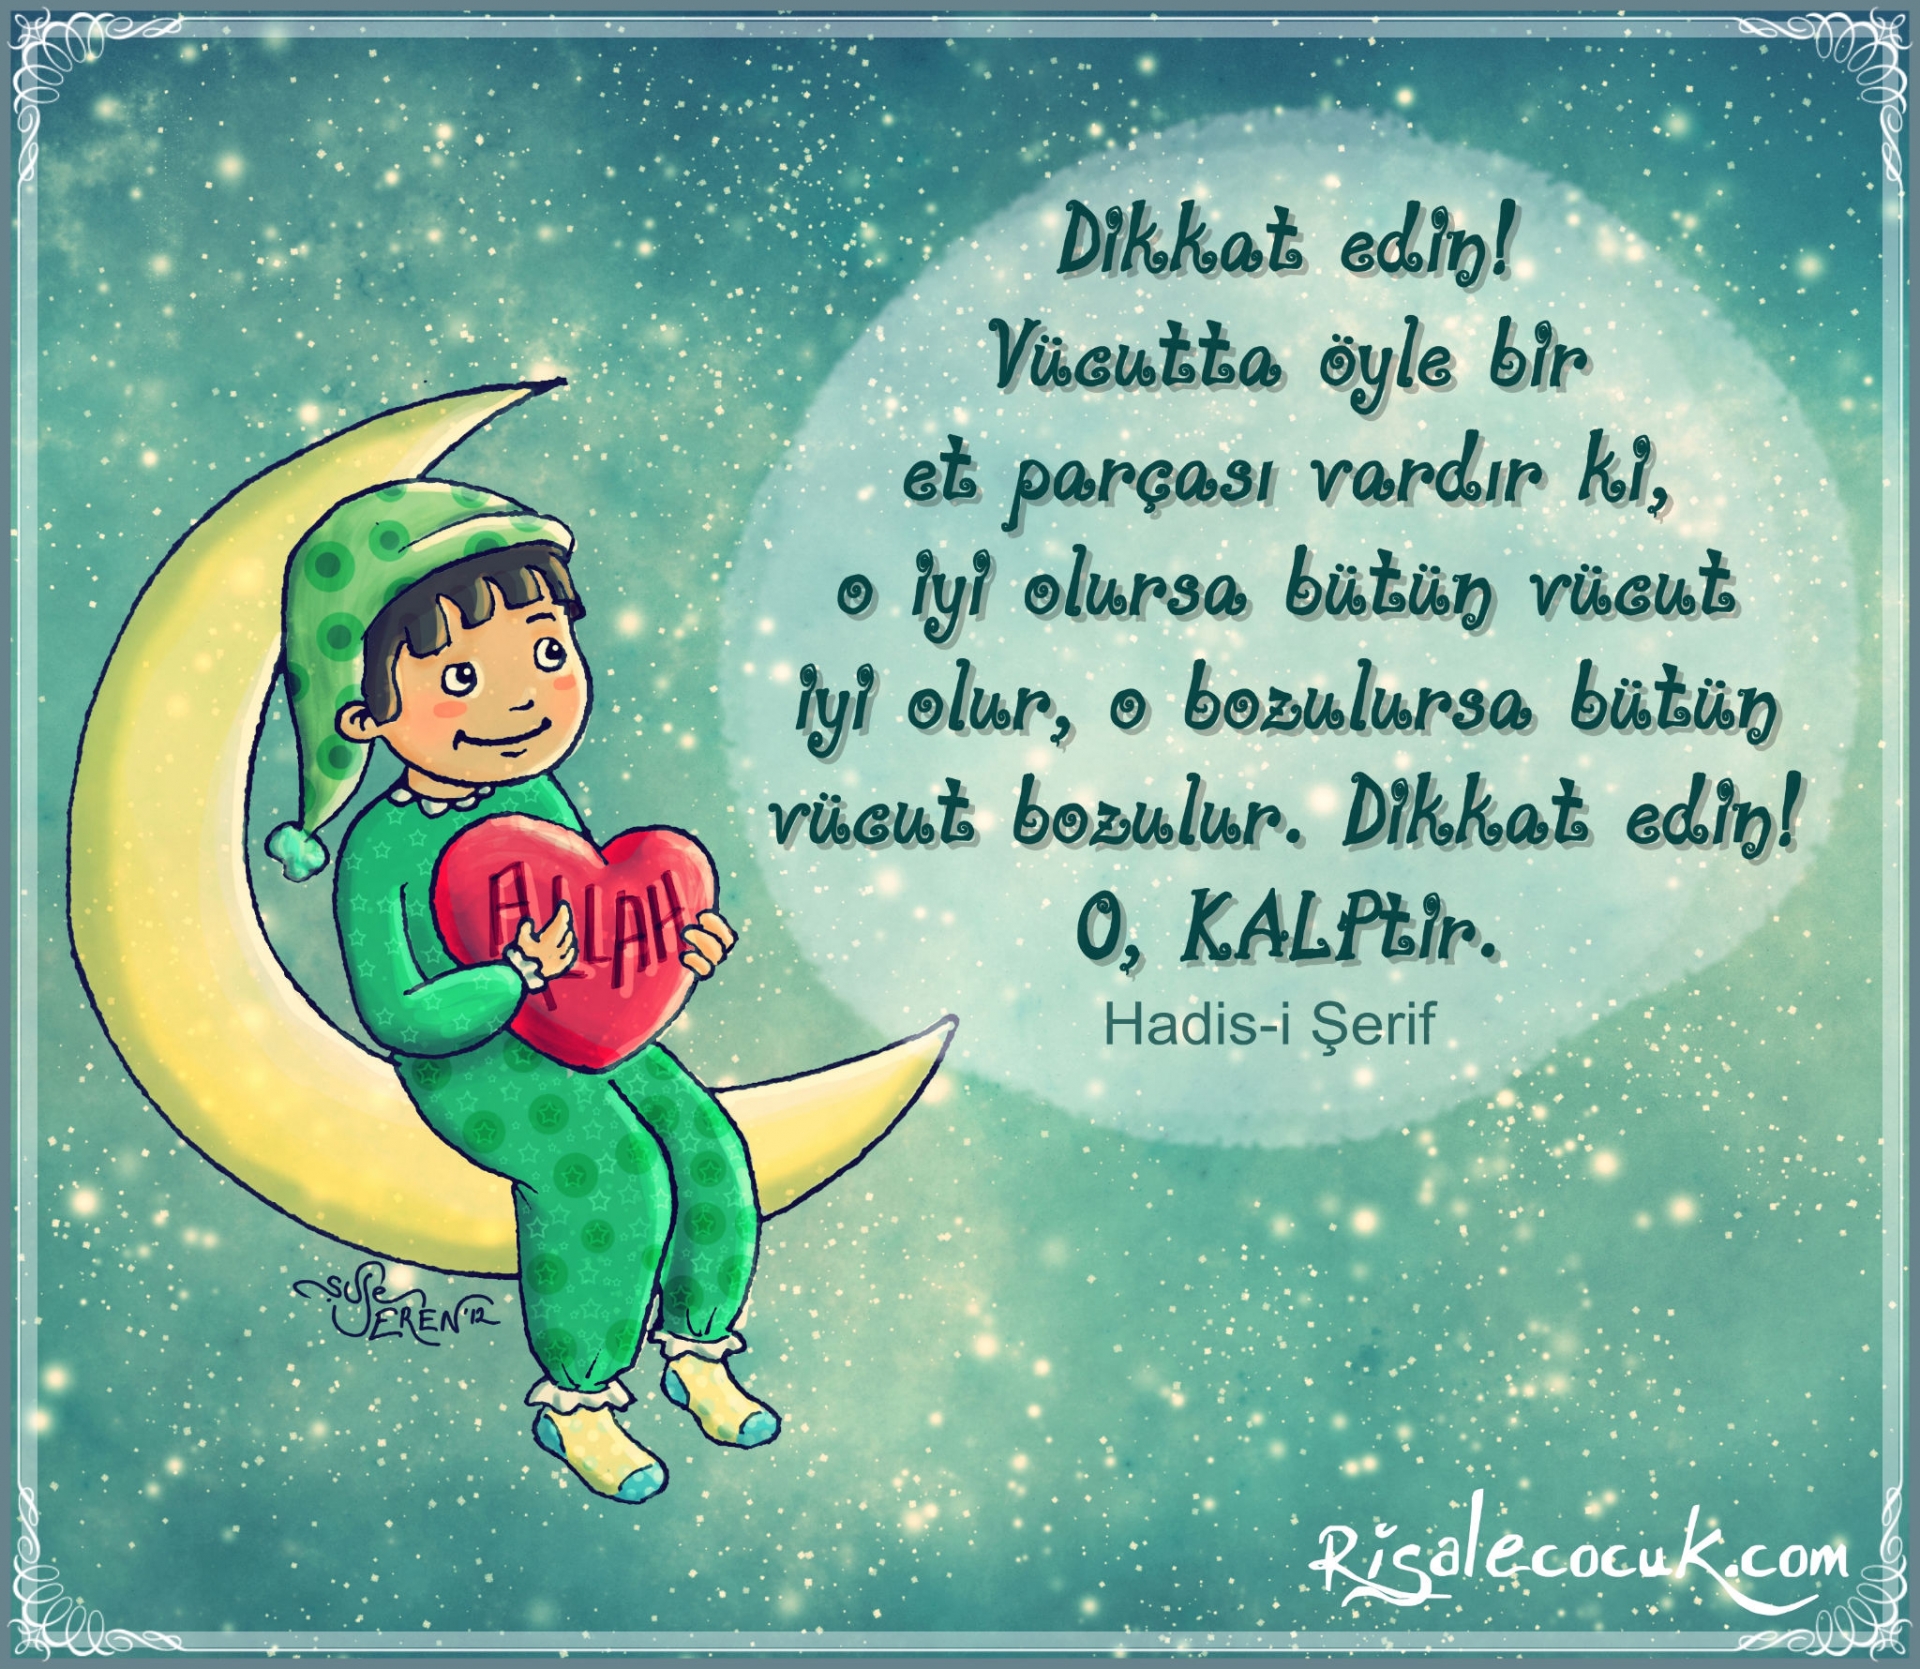 Dikkat edin!
Vücutta öyle bir
et parçası vardır ki,
o iyi olursa bütün vücut
iyi olur, o bozulursa bütün
vücut bozulur. Dikkat edin!
O, KALPtir.
Hadis-i Şerif
ALLAH
EREN'12
Risalecocuk.com